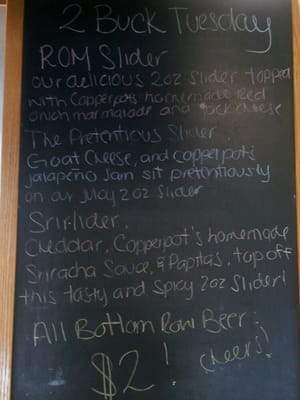 2 Buck Tuesday
ROM Slider
our delicious 2oz slider topped
with Copperpots homemade Red
onion marmalade and Jack cheese
The Pretentious Slider.
Goat Cheese, and Copperpot's
jalapeño Jam sit pretentiously
on our juicy 2oz slider
Srir-lider.
Cheddar, Copperpot's homemade
Sriracha Sauce, & Papitas, top off
this tasty and spicy 2oz slider!
All Bottom Row Beer:
$2! (cheers)